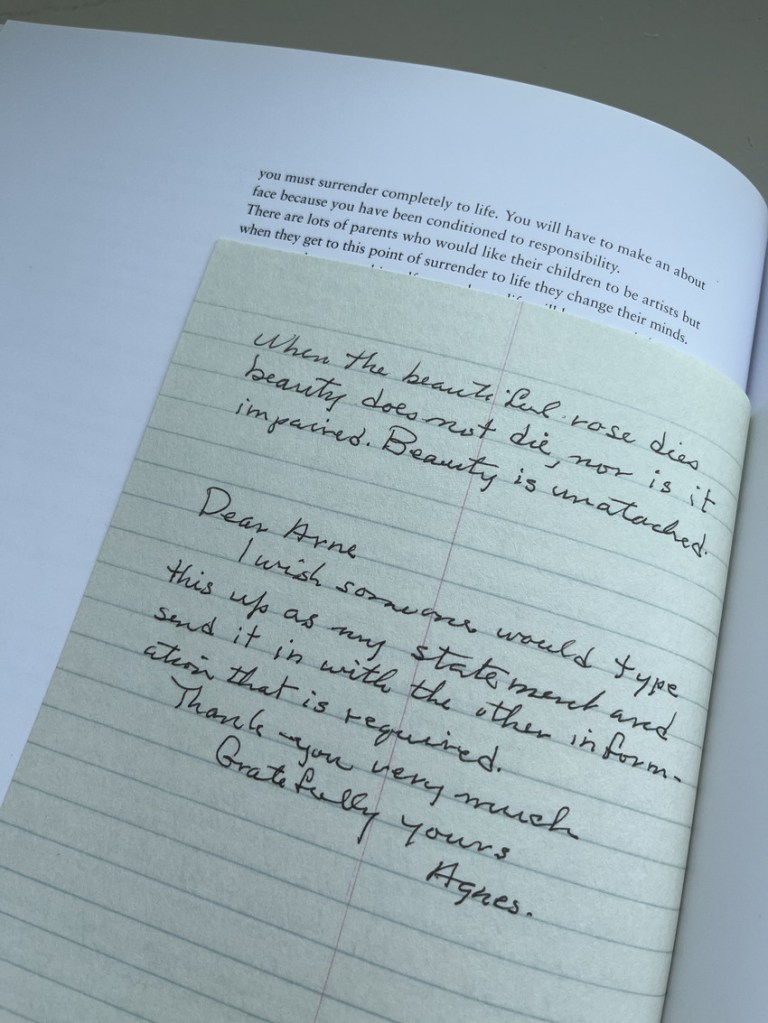 you must surrender completely to life. You will have to make an about
face because you have been conditioned to responsibility.
There are lots of parents who would like their children to be artists but
when they get to this point of surrender to life they change their minds.
When the beautiful rose dies
beauty does not die, nor is it
impaired. Beauty is unatached.
Dear Arne
I wish someone would type
this up as my statement and
send it in with the other inform-
ation that is required.
Thank you very much
Gratefully yours
Agnes.